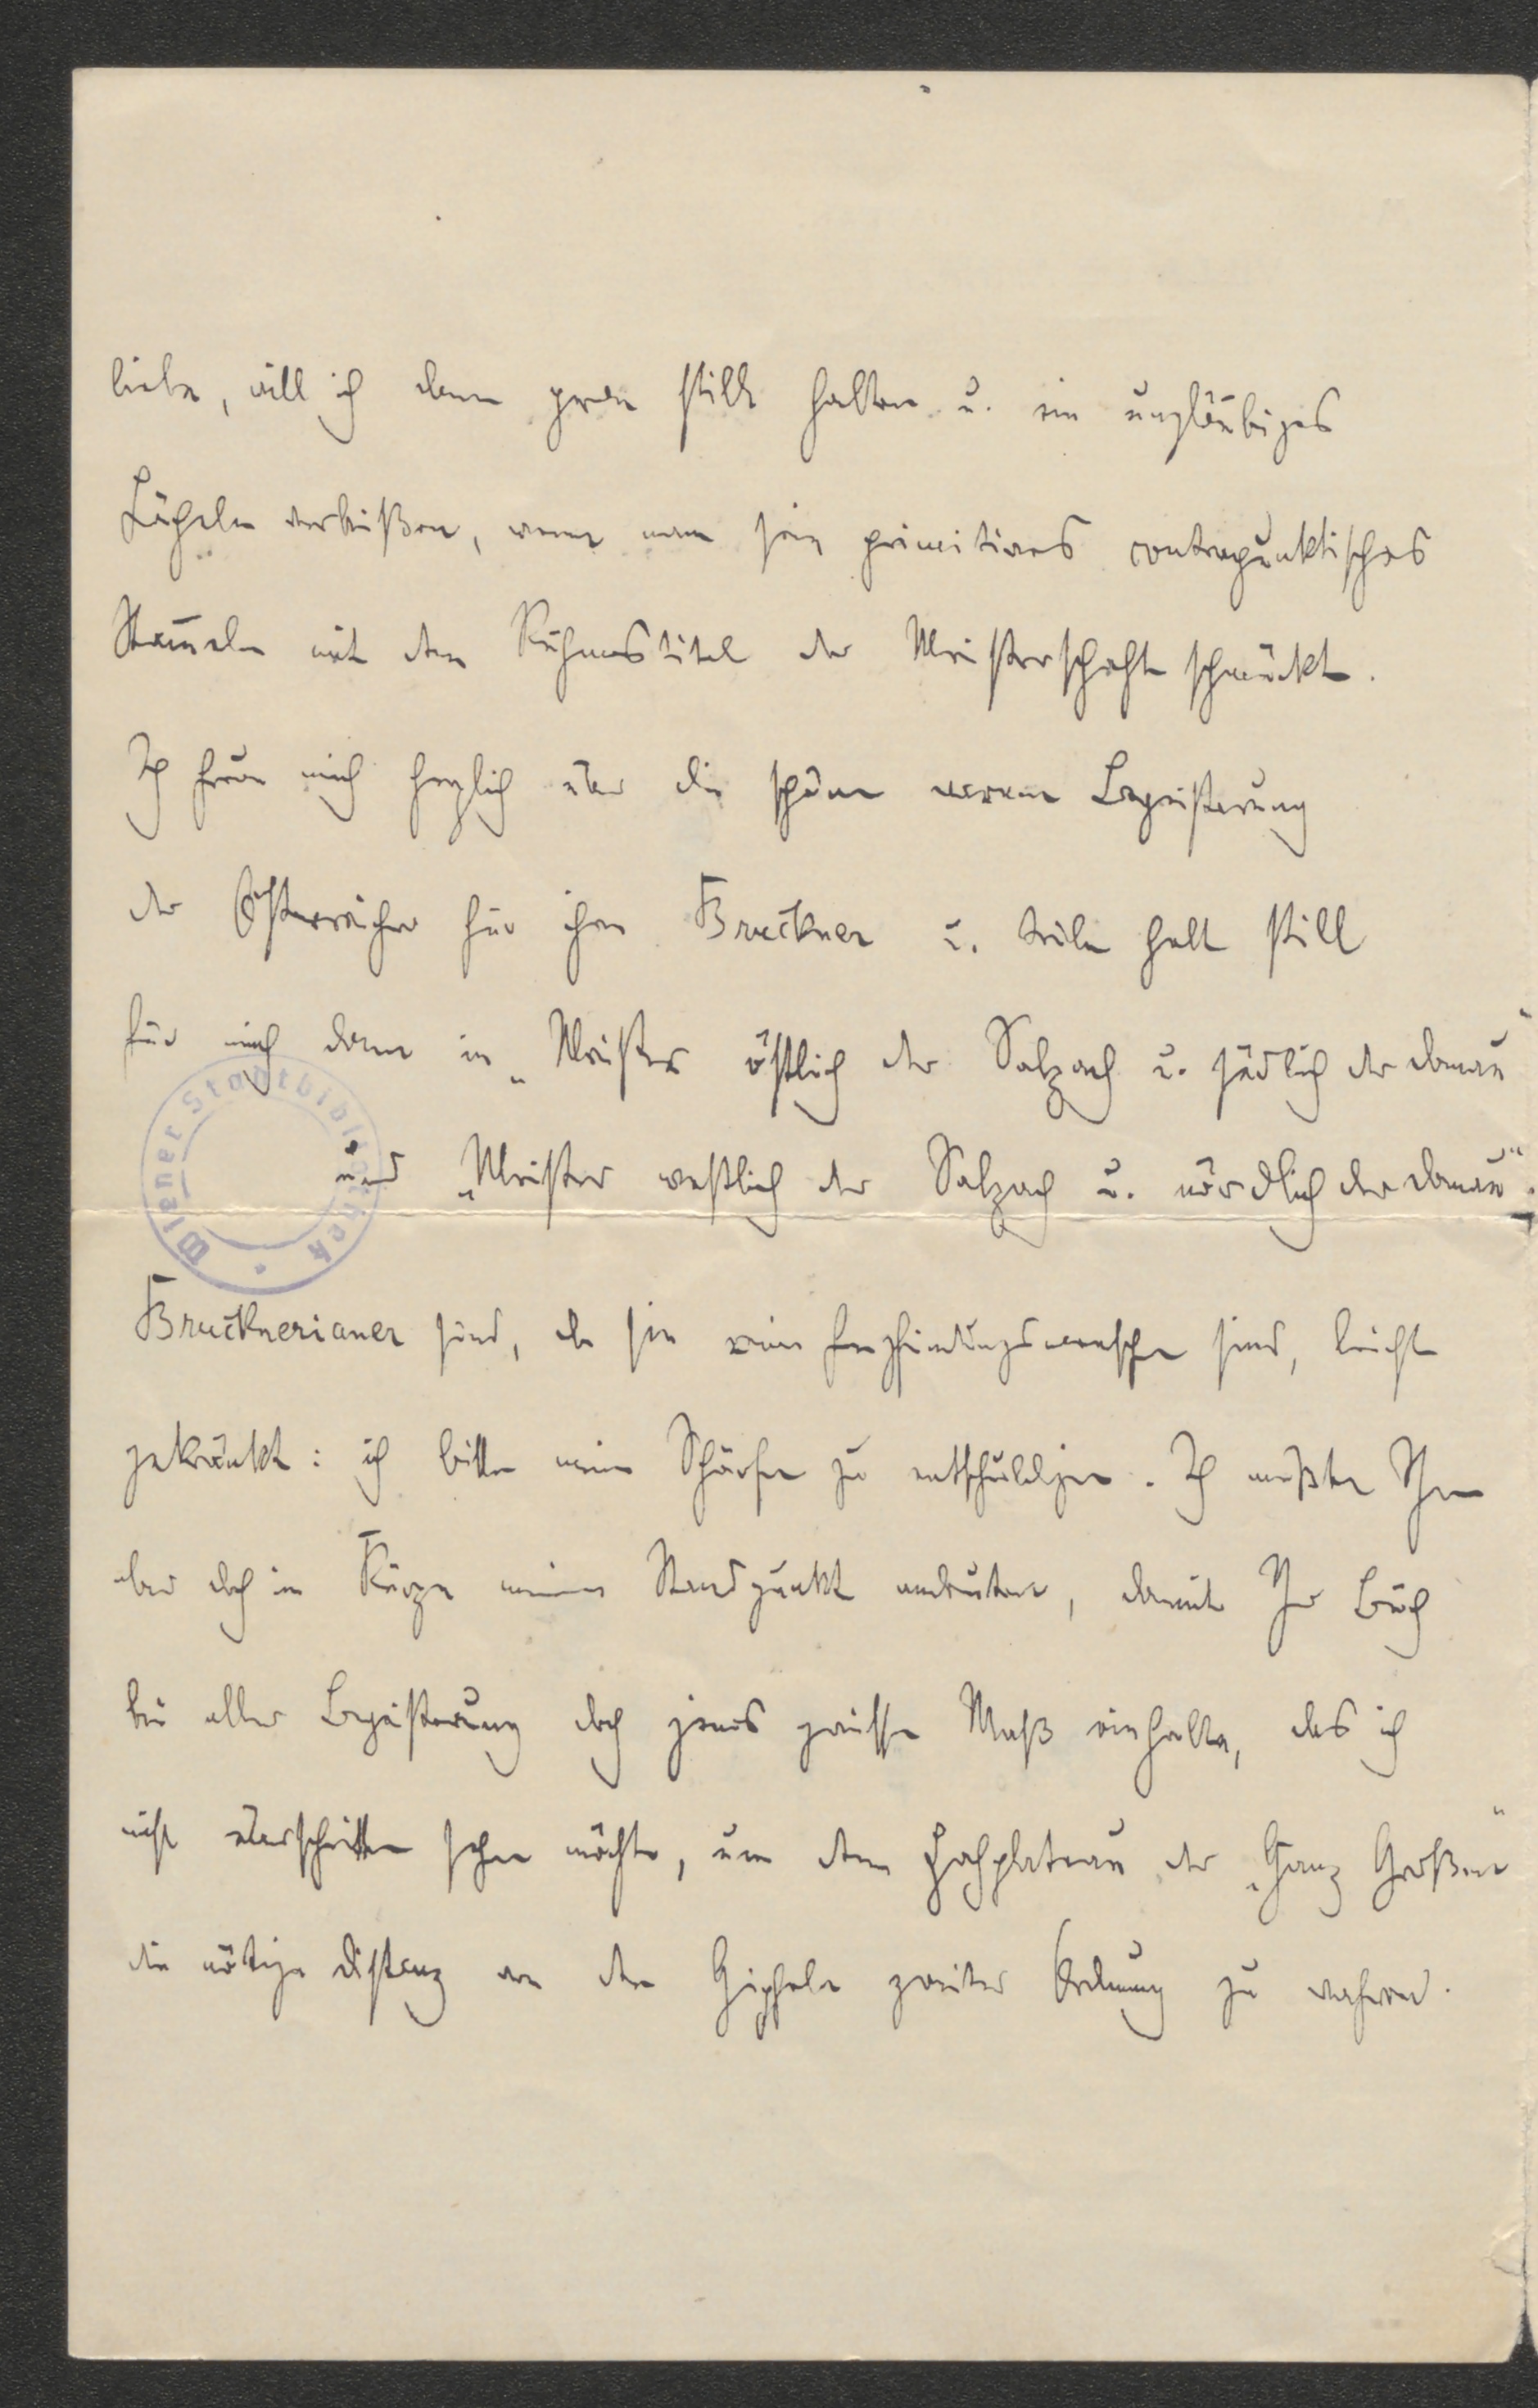 liebe, will ich dann gerne stille halten u. ein ungläubiges
Lächeln verbeißen, wenn man sein primitives contrapunktisches
Stam̅eln mit dem Ruhmestitel der Meisterschaft schmückt.
Ich freue mich herzlich über die schöne warme Begeisterung
der Österreicher für ihren Bruckner u. teile halt still
für mich dann in „Meister östlich der Salzach u. südlich der Donau“
und „Meister westlich der Salzach u. nördlich der Donau“.
Brucknerianer sind, da sie reine Empfindungsmenschen sind, leicht
gekränkt: ich bitte meine Schärfe zu entschuldigen. Ich mußte Ihnen
aber doch in Kürze meinen Standpunkt andeuten, damit Ihr Buch
bei aller Begeisterung doch jenes gewisse Maß einhalte, das ich
nicht überschritten sehen möchte, um dem Hochplateau der „Ganz Großen“
die nötige Distanz von den Gipfeln zweiter Ordnung zu wahren.
Wiener Stadtbibliothek